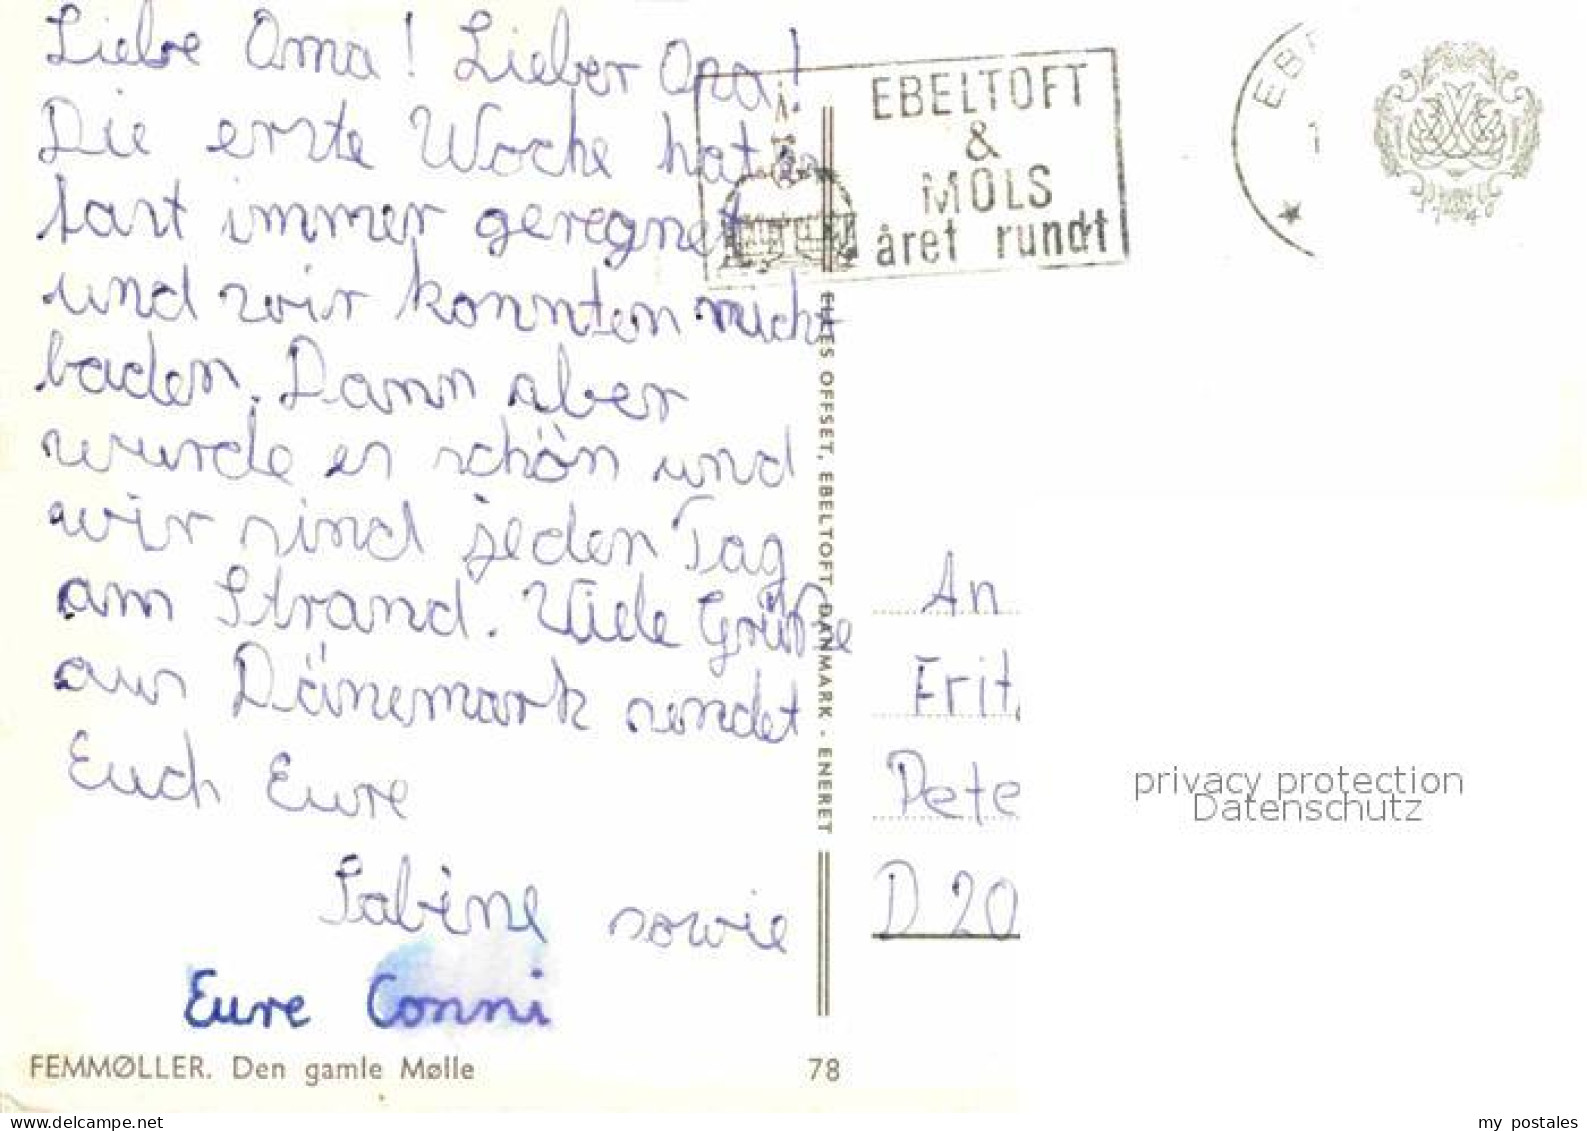 Liebe Oma! Lieber Opa!
Die erste Woche hat es
fast immer geregnet
und wir konnten nicht
baden. Dann aber
wurde es schön und
wir sind jeden Tag
am Strand. Viele Grüße
aus Dänemark sendet
Euch Eure
Sabine sowie
Eure Conni
FEMMØLLER. Den gamle Mølle
78
EBELTOFT
&
MOLS
året rundt
EB
1740
ELLES OFFSET, EBELTOFT DANMARK · ENERET
An
Frit
Pete
D 20
privacy protection
Datenschutz
www.delcampe.net
my postales